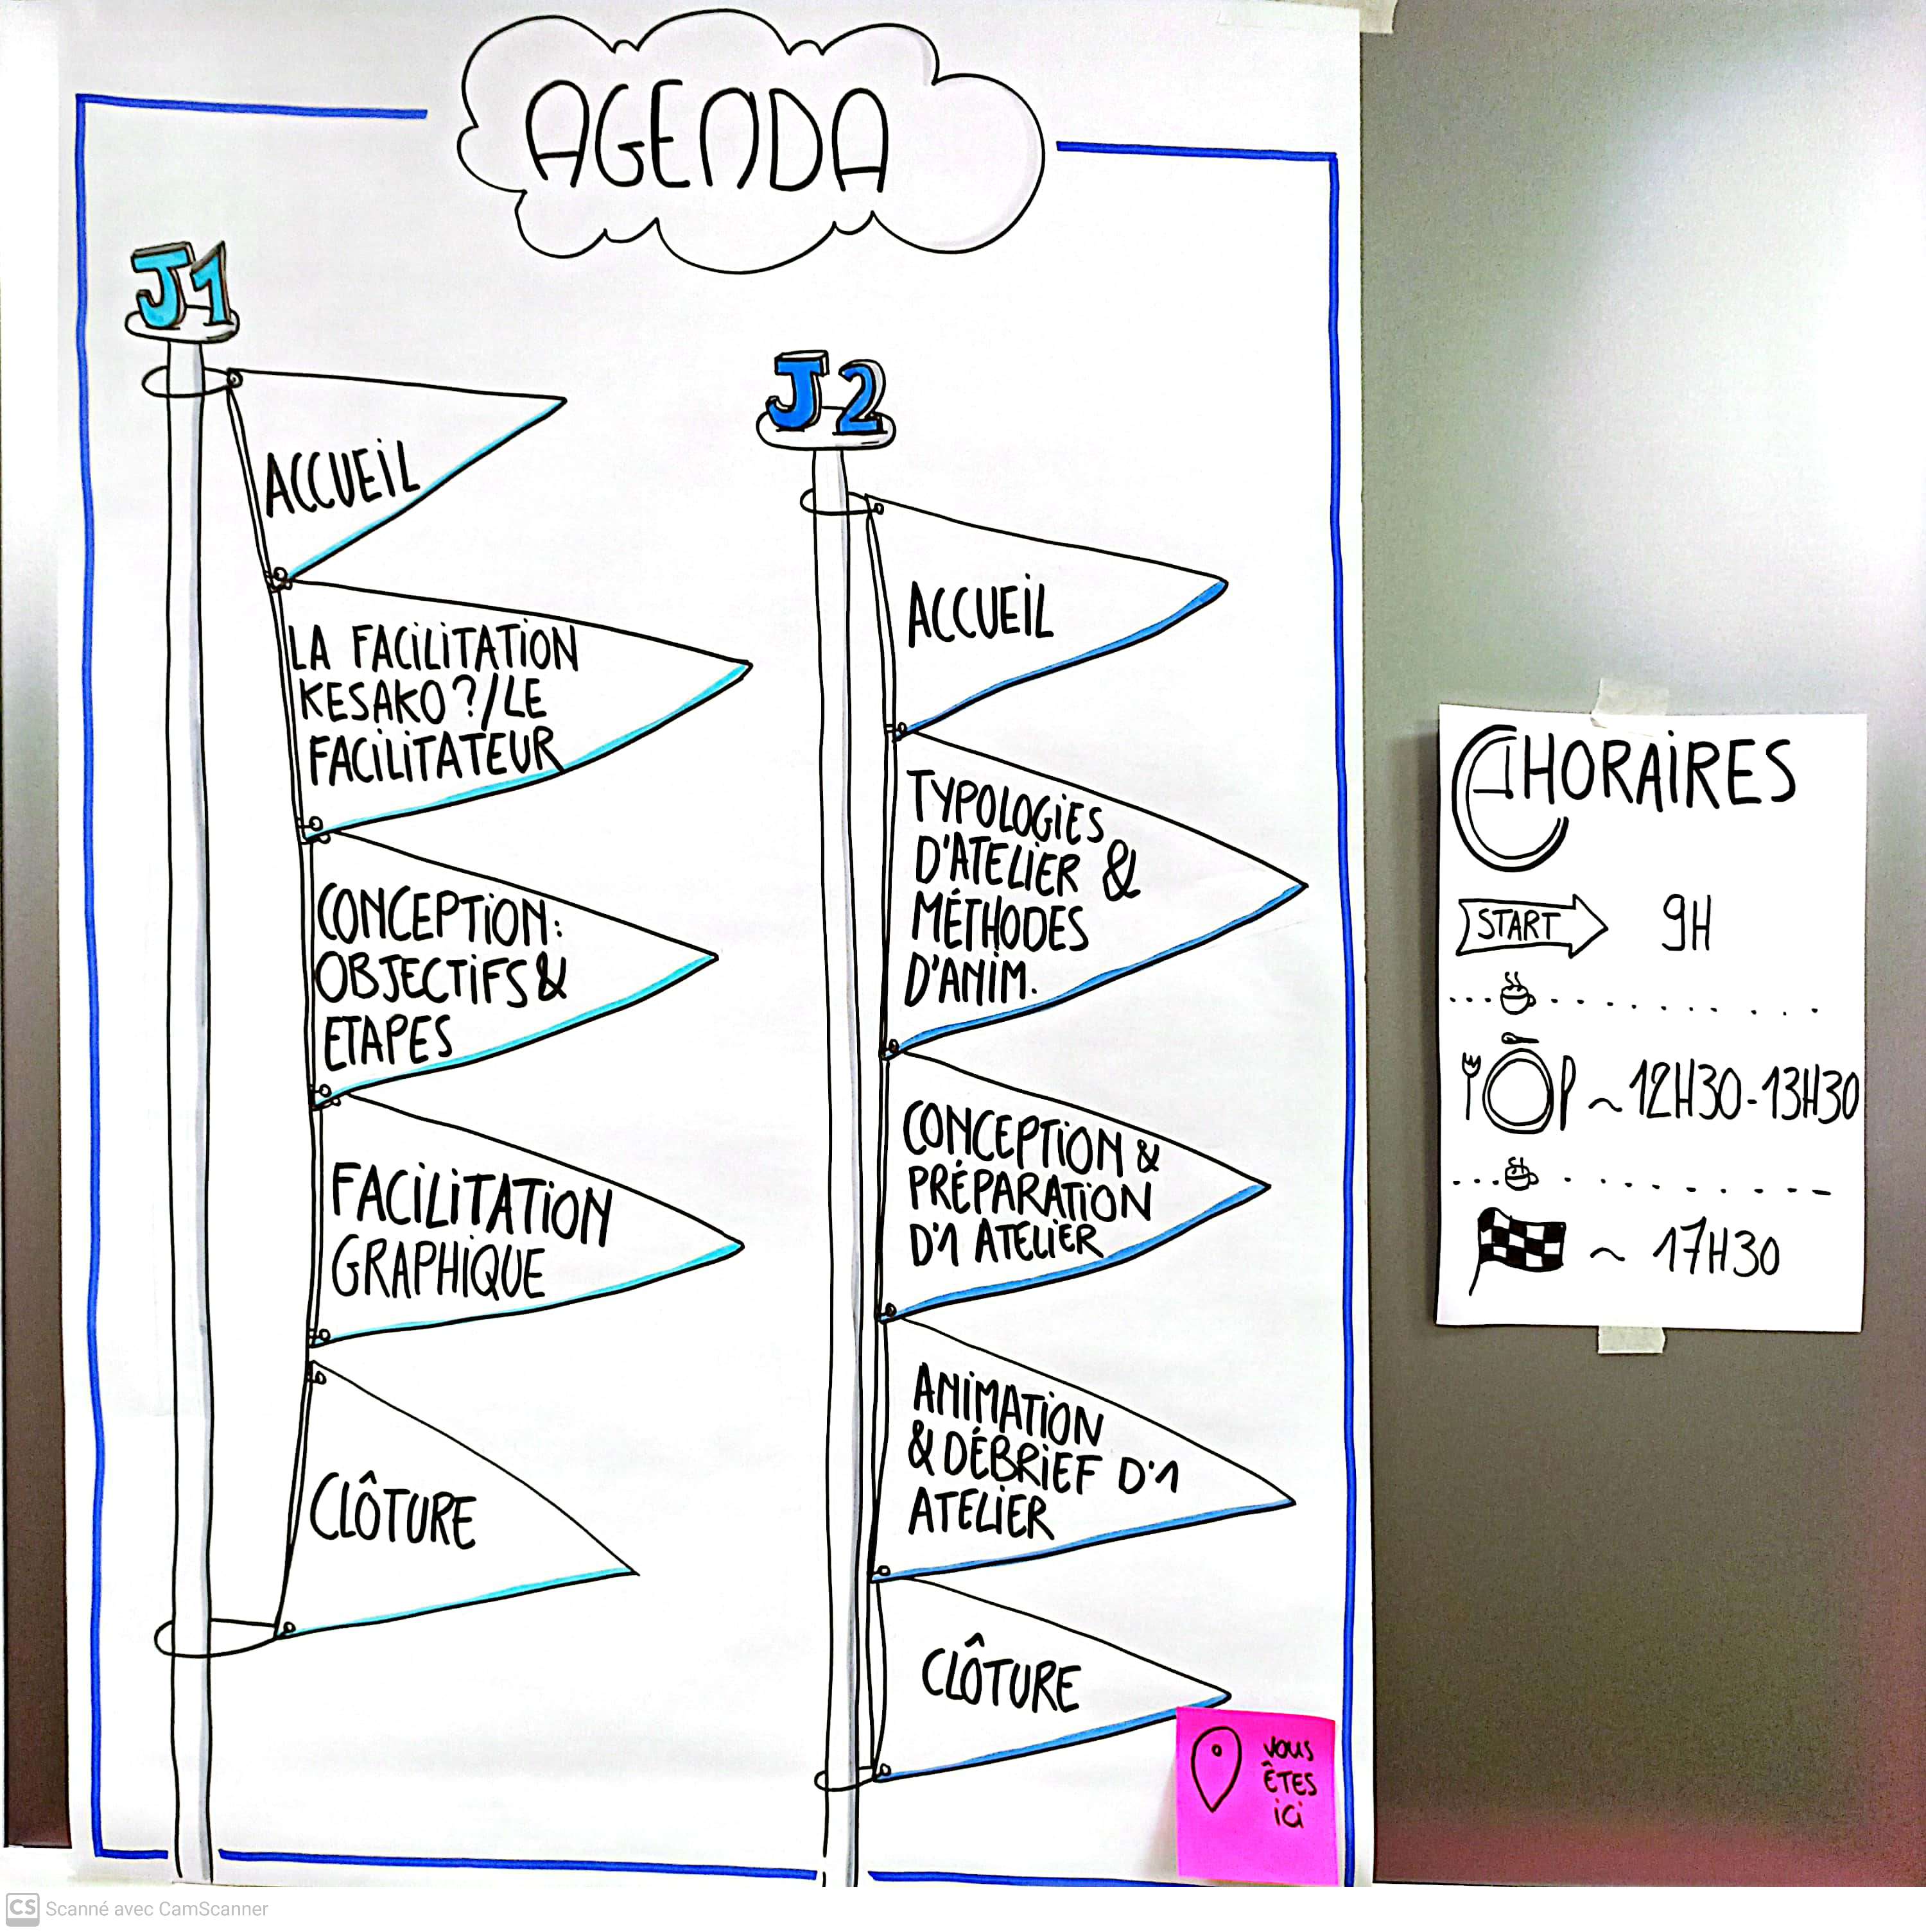 AGENDA
J1
ACCUEIL
LA FACILITATION
KESAKO ?/LE
FACILITATEUR
CONCEPTION:
OBJECTIFS &
ETAPES
FACILITATION
GRAPHIQUE
CLÔTURE
J2
ACCUEIL
TYPOLOGIES
D'ATELIER &
MÉTHODES
D'ANIM.
CONCEPTION &
PRÉPARATION
D'1 ATELIER
ANIMATION
& DÉBRIEF D'1
ATELIER
CLÔTURE
VOUS
ÊTES
ici
HORAIRES
START 9H
~12H30-13H30
~ 17H30
CS Scanné avec CamScanner